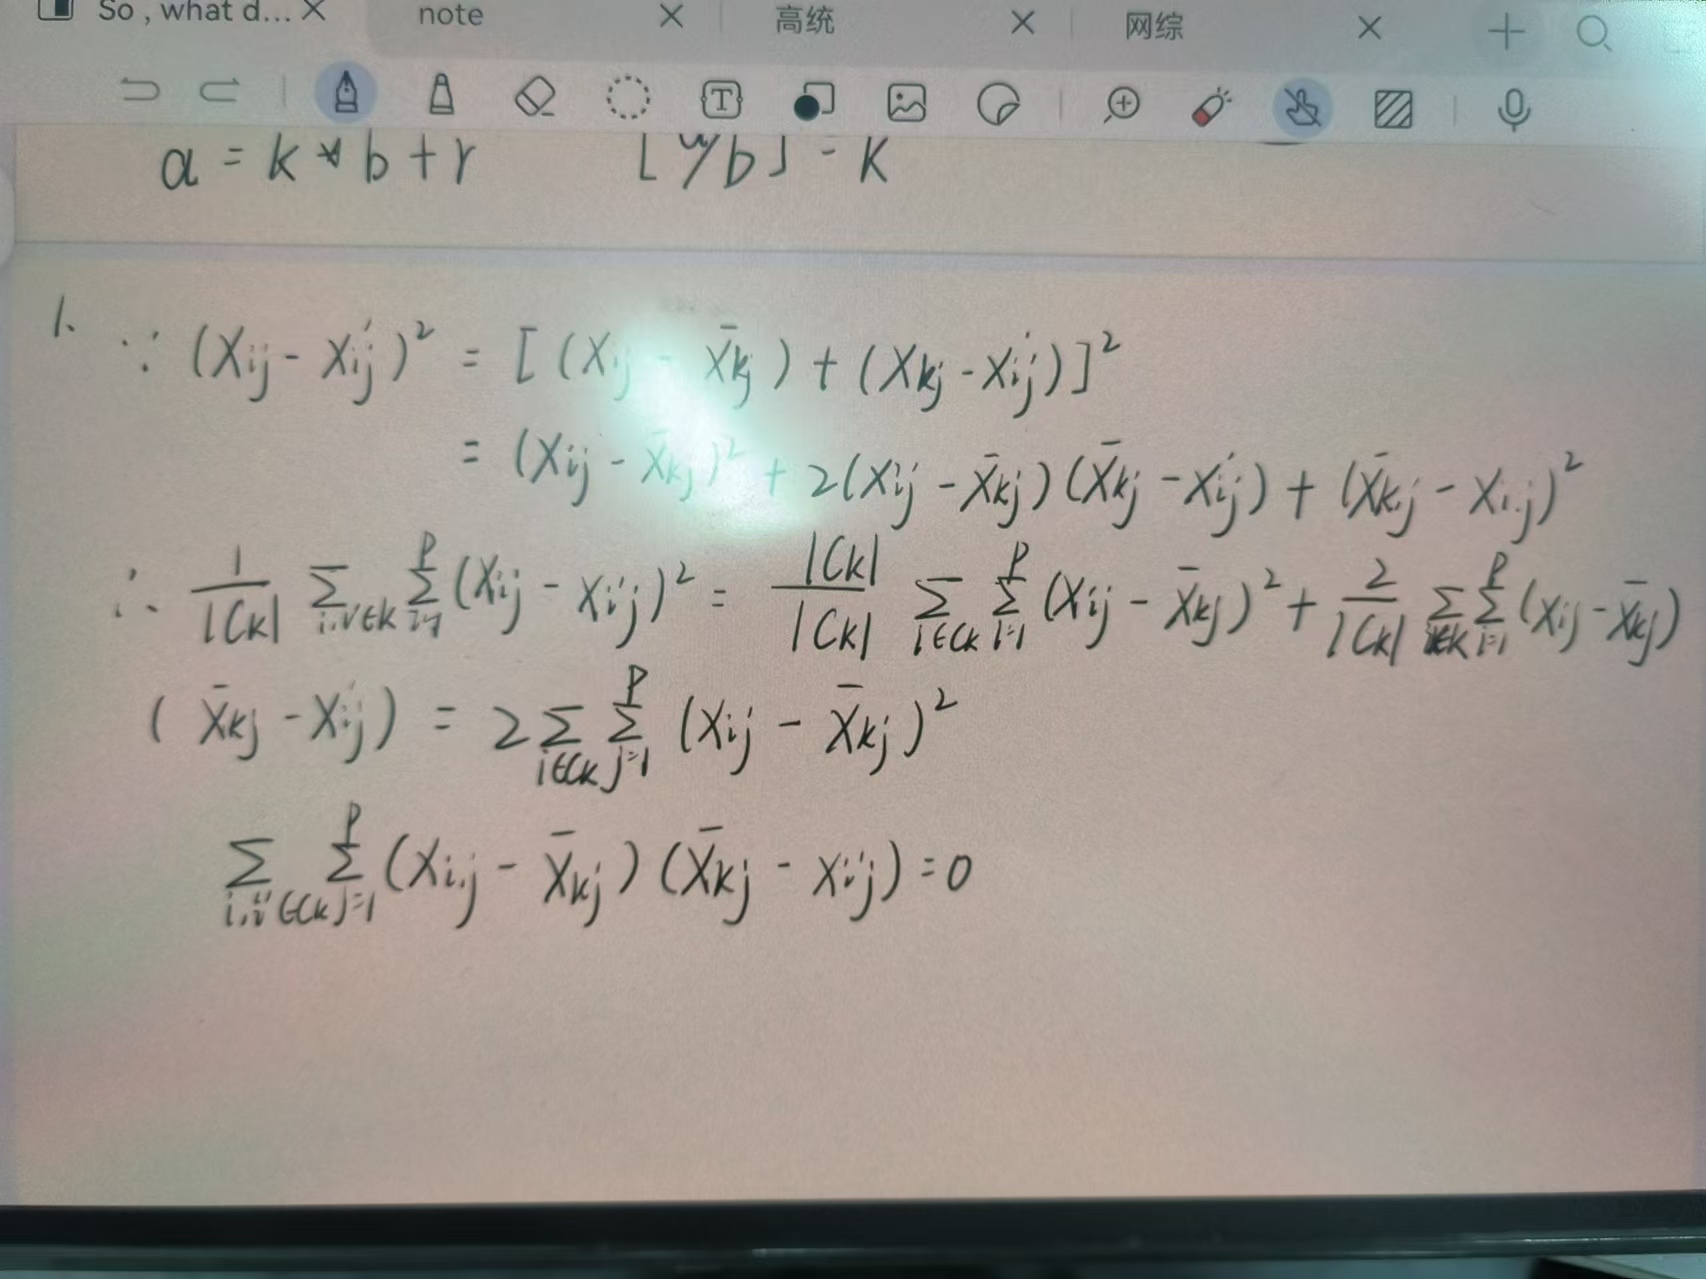 So , what d...
note
高统
网综
a = k * b + r ⌊a/b⌋ = K
1. ∵ (Xij - Xi'j)² = [(Xij - X̄kj) + (Xkj - Xi'j)]²
= (Xij - X̄kj)² + 2(Xij - X̄kj)(X̄kj - Xi'j) + (X̄kj - Xi'j)²
∴ 1/|Ck| Σ i,i'∈k Σ i=1 P (Xij - Xi'j)² = |Ck|/|Ck| Σ i∈Ck Σ i=1 P (Xij - X̄kj)² + 2/|Ck| Σ Σ i=1 P (Xij - X̄kj)
(X̄kj - Xi'j) = 2 Σ i∈Ck Σ j=1 P (Xij - X̄kj)²
Σ i,i'∈Ck Σ j=1 P (Xij - X̄kj)(X̄kj - Xi'j) = 0